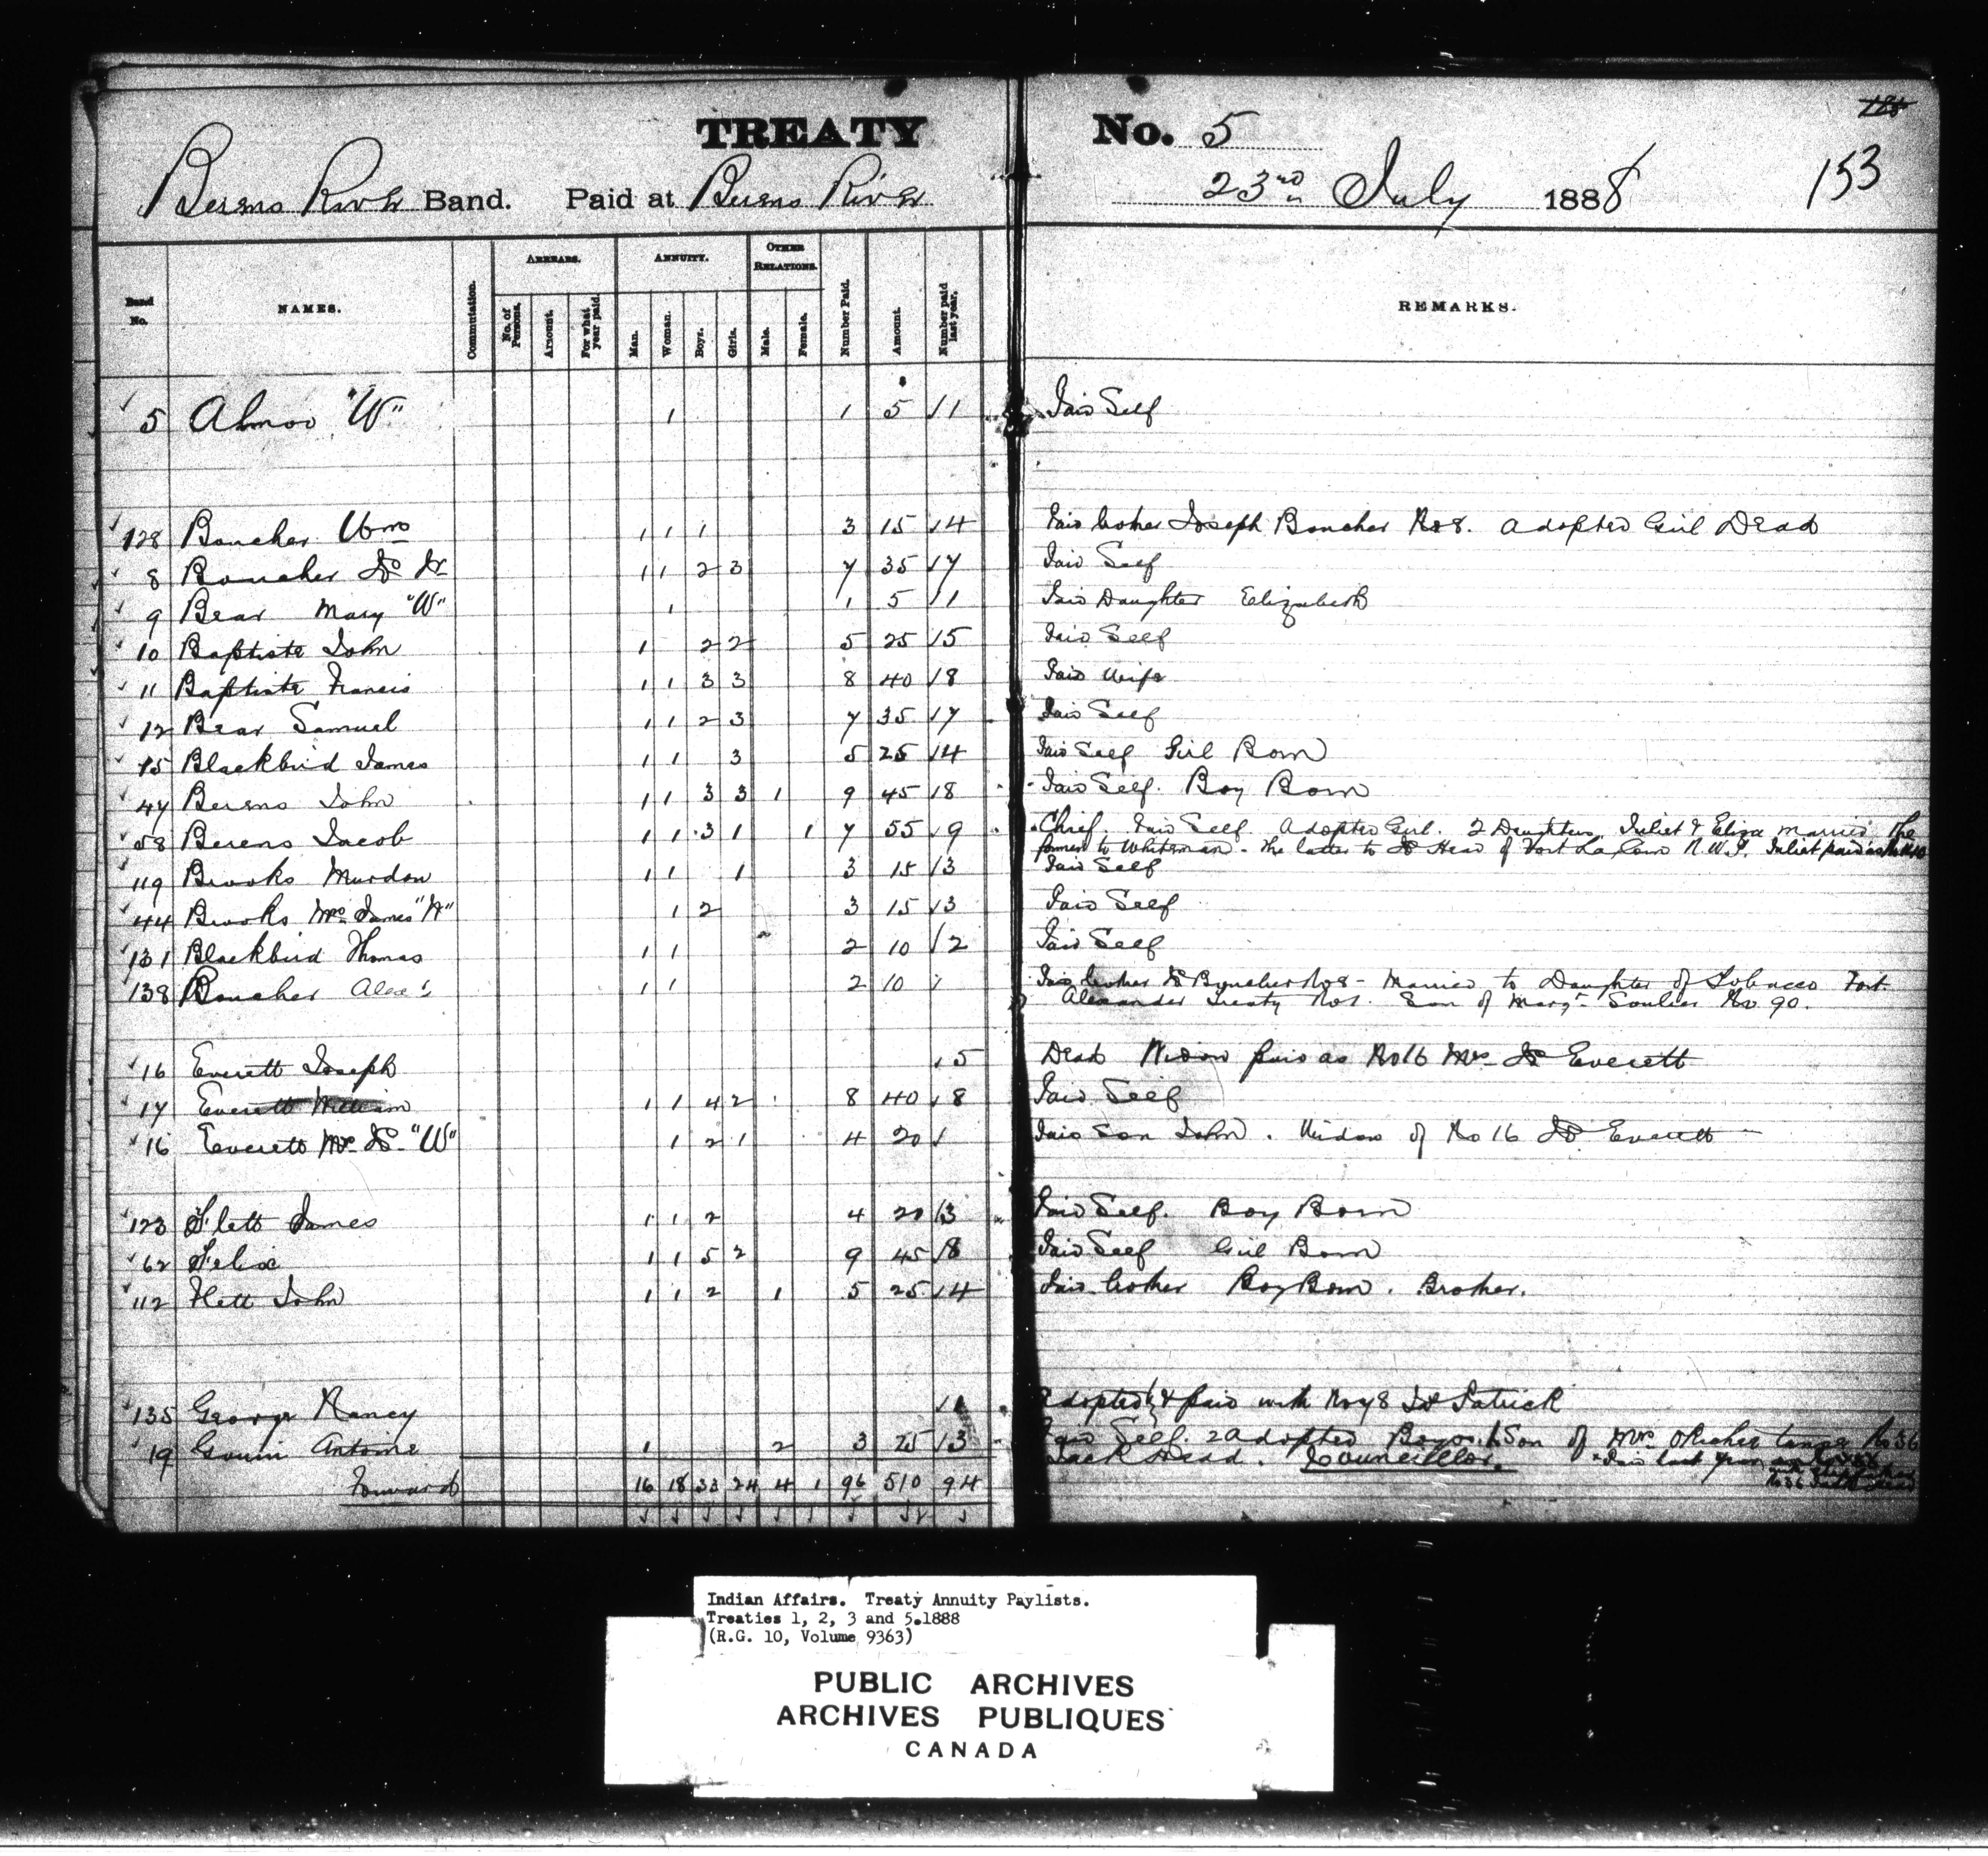 TREATY No. 5
153
Berens River Band. Paid at Berens River 23rd July 1888
Band No. NAMES. Commutation. ARREARS. No. of Persons. Amount. For what year paid. ANNUITY. Man. Woman. Boys. Girls. OTHER RELATIONS. Male. Female. Number Paid. Amount. Number paid last year. REMARKS.
5 Ahmoo "W" 1 1 5 1 Paid Self
128 Boucher Wm 1 1 1 3 15 4 Paid Joseph Boucher No 8. Adopted Girl Dead
8 Boucher Jos Sr 1 1 2 3 7 35 7 Paid Self
9 Bear Mary "W" 1 1 5 1 Paid Daughter Elizabeth
10 Baptiste John 1 2 2 5 25 5 Paid Self
11 Baptiste Francis 1 1 3 3 8 40 8 Paid Wife
12 Bear Samuel 1 1 2 3 7 35 7 Paid Self
15 Blackbird James 1 1 3 5 25 4 Paid Self Girl Born
47 Berens John 1 1 3 3 1 9 45 8 Paid Self. Boy Born
58 Berens Jacob 1 1 3 1 1 7 55 9 Chief. Paid Self Adopted Girl. 2 Daughters Juliet & Eliza married The
former to Whiteman - the latter to Head of Fort La Corne N.W.T. Juliet paid as
119 Brooks Murdon 1 1 1 3 15 3 Paid Self
44 Brooks Mrs James "W" 1 2 3 15 3 Paid Self
131 Blackbird Thomas 1 1 2 10 2 Paid Self
138 Boucher Alex 1 1 2 10 Paid Boucher No 8 - Married to Daughter of Tobacco Fort
Alexander Treaty No 1. Son of Margt Soulier No 90.
16 Everett Joseph 5 Dead Widow paid as No 16 Mrs Jos Everett
17 Everett William 1 1 4 2 8 40 8 Paid Self
16 Everett Mrs Jos "W" 1 2 1 4 20 Paid Son John. Widow of No 16 Jos Everett
123 Flett James 1 1 2 4 20 3 Paid Self. Boy Born
62 Felix 1 1 5 2 9 45 8 Paid Self Girl Born
112 Flett John 1 1 2 1 5 25 4 Paid Boy Born. Brother.
135 George Nancy 1 Adopted & paid with No 78 Patrick
19 Gouin Antoine 1 2 3 25 3 Paid Self. 2 Adopted Boys. Son of Mrs No 36
Jack Dead. Councillor. Paid last year
Forward 16 18 33 24 4 1 96 510 94
Indian Affairs. Treaty Annuity Paylists.
Treaties 1, 2, 3 and 5.1888
(R.G. 10, Volume 9363)
PUBLIC ARCHIVES
ARCHIVES PUBLIQUES
CANADA